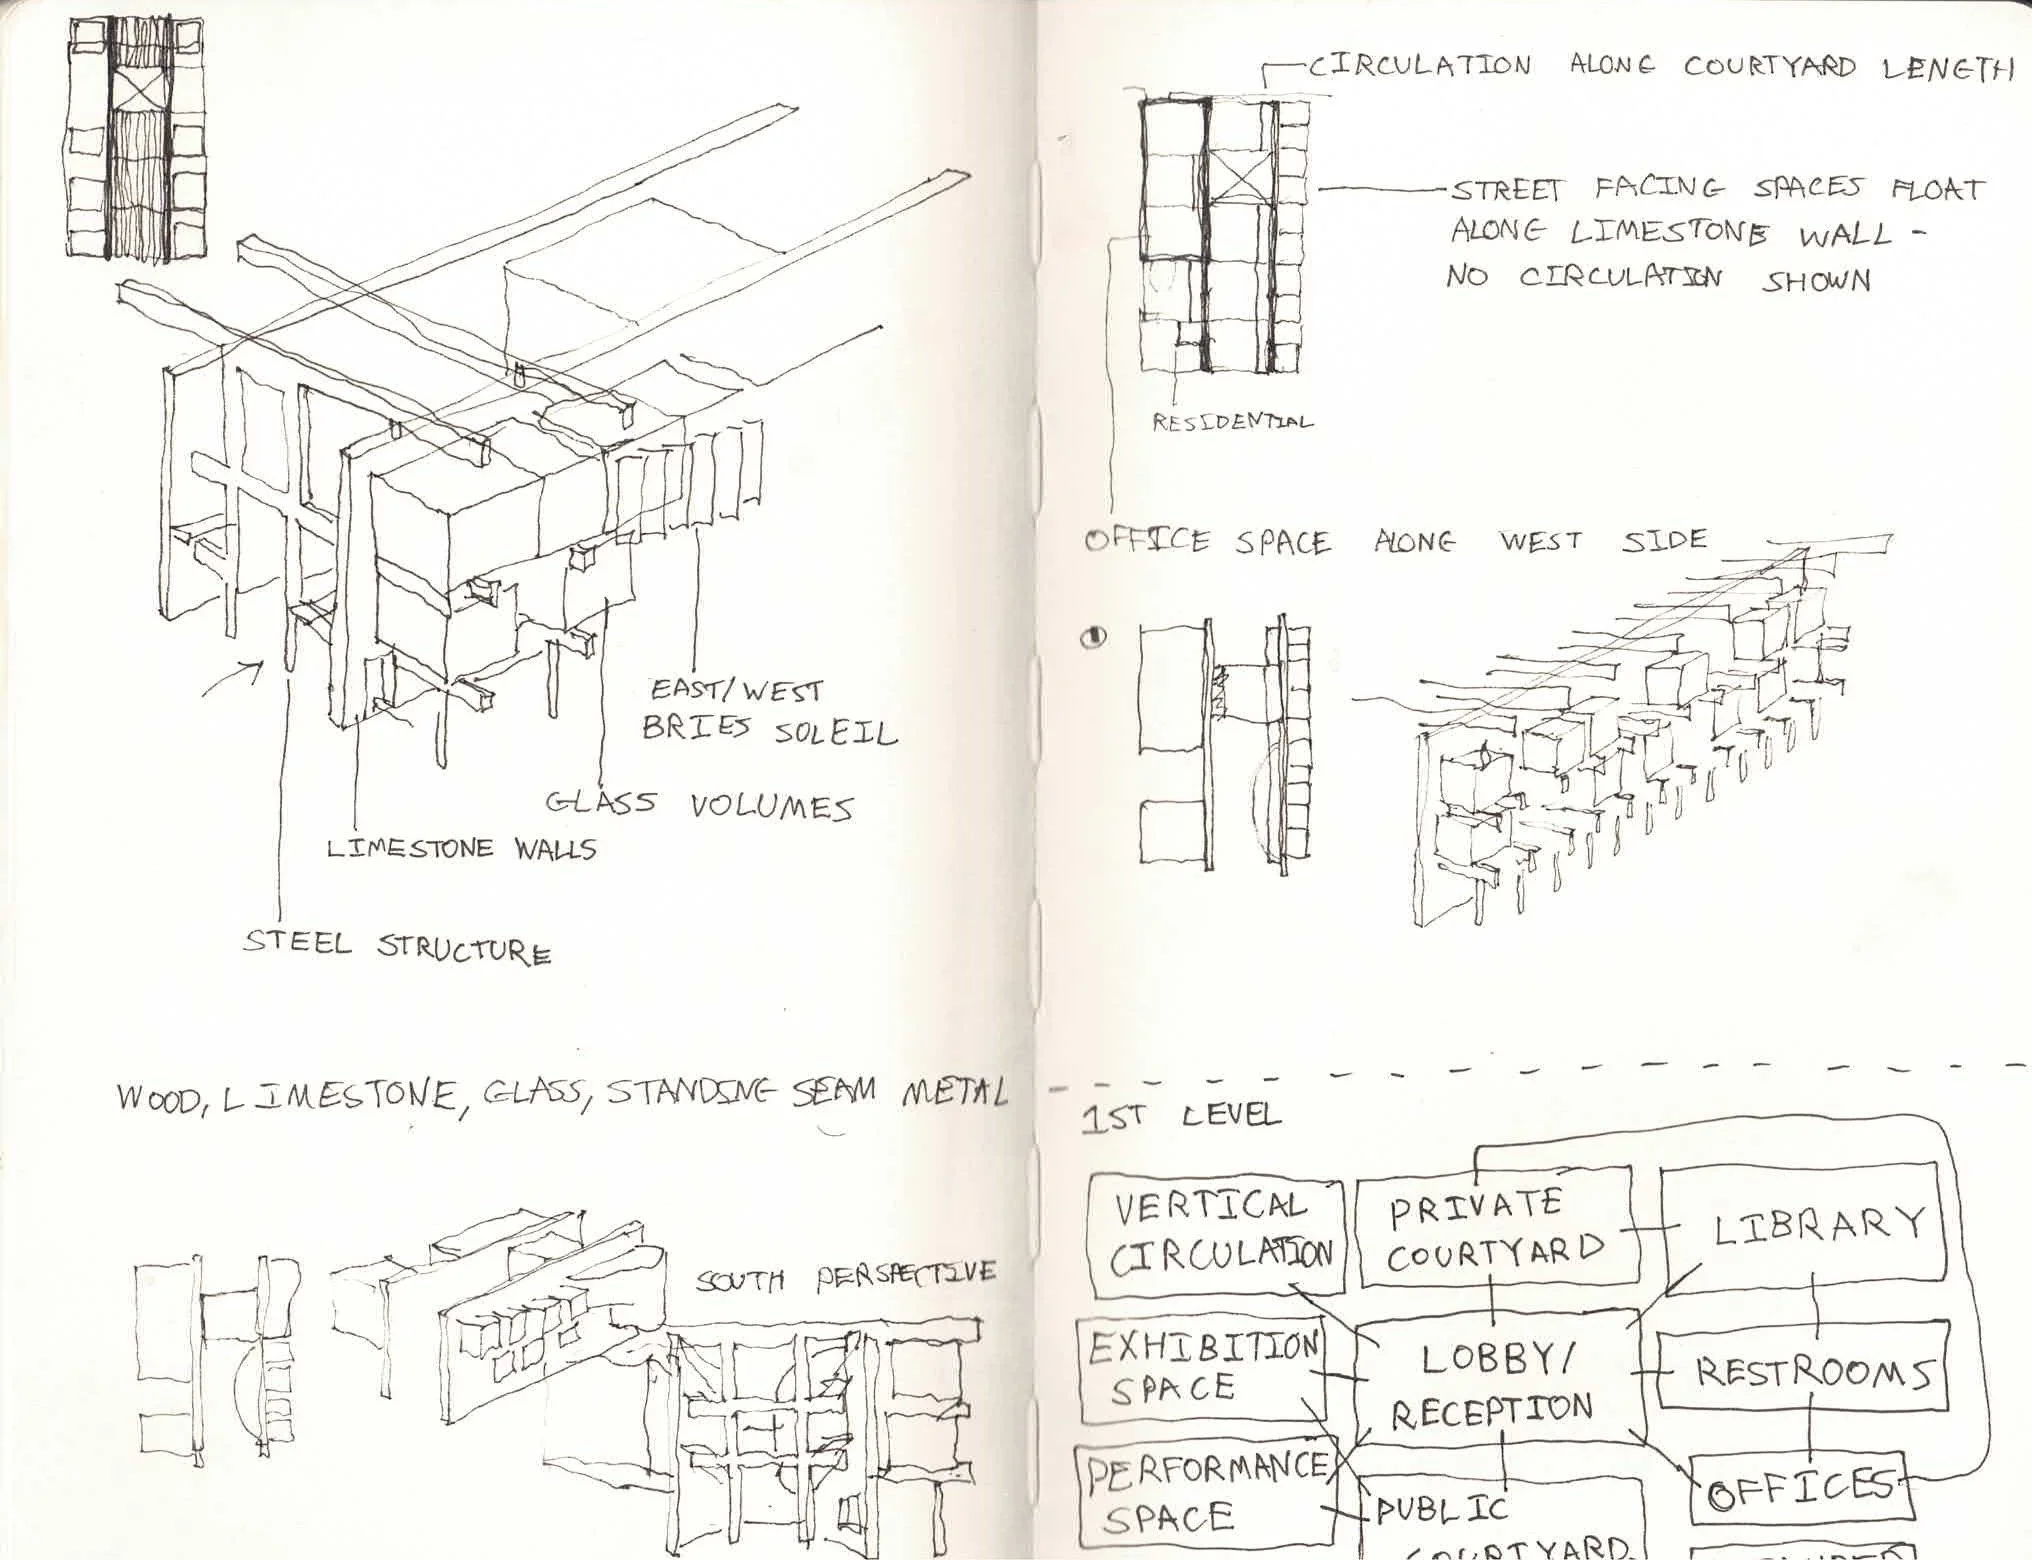 EAST/WEST
BRIES SOLEIL
GLASS VOLUMES
LIMESTONE WALLS
STEEL STRUCTURE
WOOD, LIMESTONE, GLASS, STANDING SEAM METAL
SOUTH PERSPECTIVE
CIRCULATION ALONG COURTYARD LENGTH
STREET FACING SPACES FLOAT
ALONG LIMESTONE WALL -
NO CIRCULATION SHOWN
RESIDENTIAL
OFFICE SPACE ALONG WEST SIDE
1
1ST LEVEL
VERTICAL
CIRCULATION
PRIVATE
COURTYARD
LIBRARY
EXHIBITION
SPACE
LOBBY/
RECEPTION
RESTROOMS
PERFORMANCE
SPACE
PUBLIC
COURTYARD
OFFICES